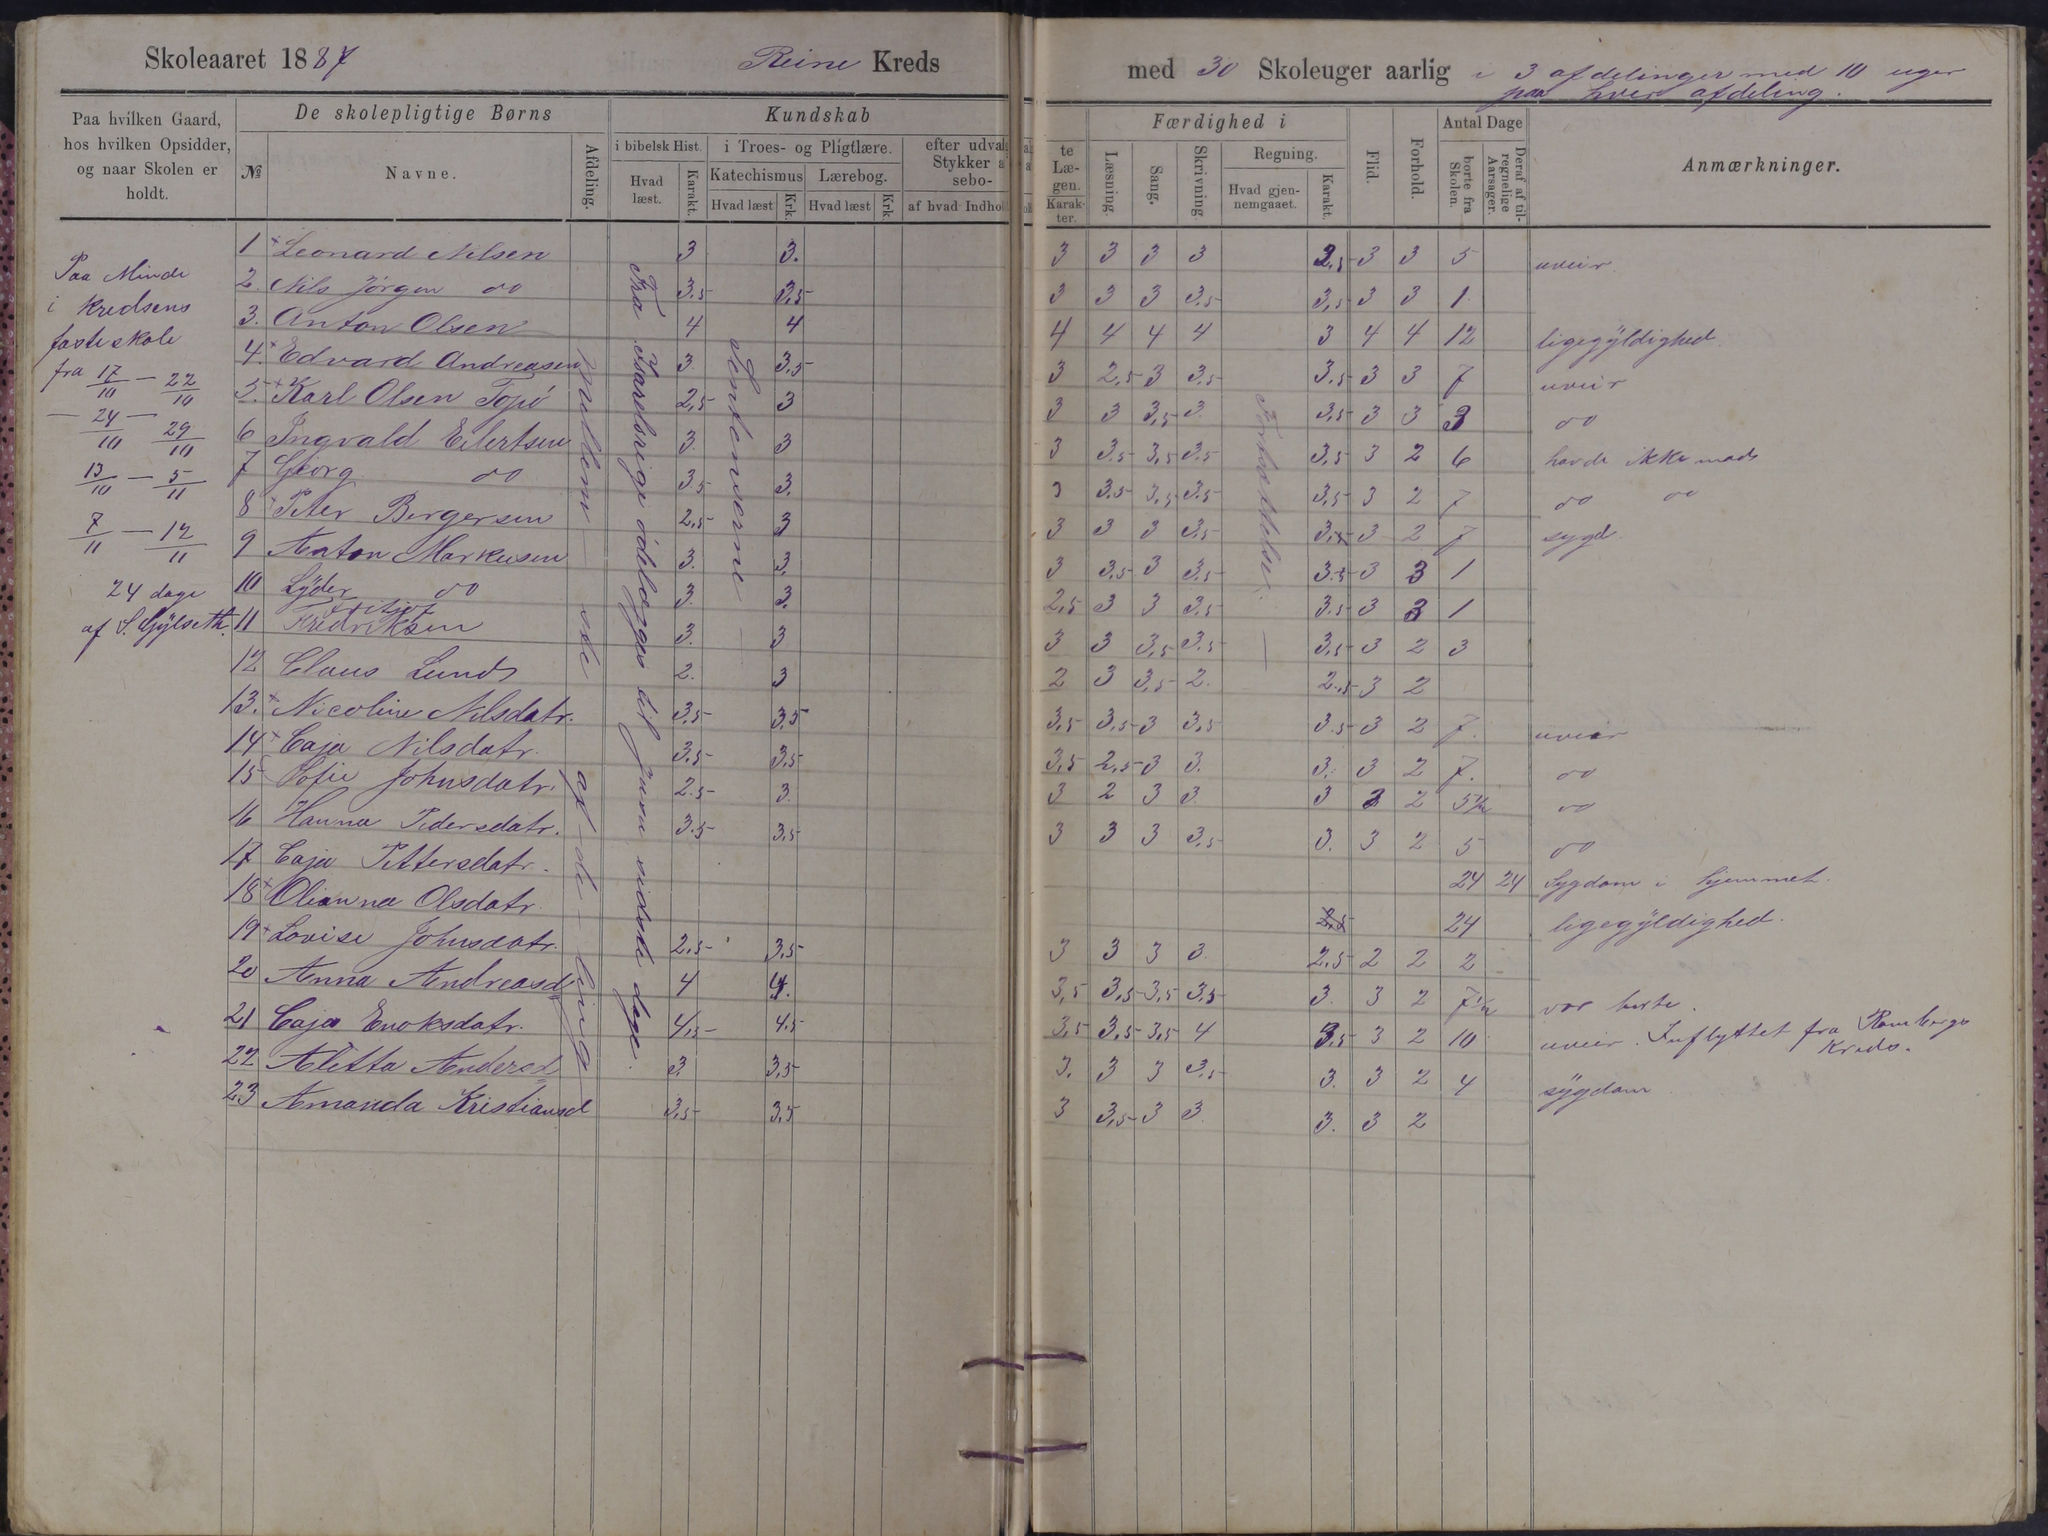 Skoleaaret 1887 Reine Kreds med 30 Skoleuger aarlig i 3 afdelinger med 10 uger
paa hver afdeling.
Paa hvilken Gaard, hos hvilken Opsidder, og naar Skolen er holdt.
De skolepligtige Børns
№ Navne. Afdeling.
Kundskab
i bibelsk Hist. i Troes- og Pligtlære. efter udvalg
Stykker a
sebo-
Hvad læst. Karakt. Katechismus Lærebog.
Hvad læst Krk. Hvad læst Krk. af hvad Indhol
te Læ- gen.
Karak- ter.
Færdighed i
Læsning. Sang. Skrivning. Regning.
Hvad gjen- nemgaaet. Karakt.
Flid. Forhold.
Antal Dage
borte fra Skolen. Deraf af til- regnelige Aarsager.
Anmærkninger.
Paa Minde
i kredsens
faste skole
fra 17/10 — 22/10
— 24/10 — 29/10
13/10 — 5/11
7/11 — 12/11
24 dage
af S. Gylseth.
mellemste afdeling
Fra Israelsrige ødelægges til Jesu sidste dage.
Sentenserne
Fortsættelse.
1 + Leonard Nilsen 3 3. 3 3 3 3 2,5 3 3 5 uveir
2. Nils Jörgen do 3,5 3,5 3 3 3 3,5 3,5 3 3 1
3. Anton Olsen 4 4 4 4 4 4 3 4 4 12 ligegÿldighed
4. + Edvard Andreasen 3. 3,5 3 2,5 3 3,5 3,5 3 3 7 uveir
5. + Karl Olsen Topö 2,5 3 3 3 3,5 3. 3,5 3 3 3 do
6 Ingvald Eilertsen 3. 3 3 3,5 3,5 3,5 3,5 3 2 6 havde ikke mad
7 Georg do 3,5 3. 3 3,5 3,5 3,5 3,5 3 2 7 do do
8 Peter Bergersen 2,5 3 3 3 3 3,5 3,5 3 2 7 sygd.
9 Anton Markusen 3. 3. 3 3,5 3 3,5 3,5 3 3 1
10 Lÿder do 3. 3. 2,5 3 3 3,5 3,5 3 3 1
11 Fritjof Fredriksen 3. 3 3 3 3,5 3,5 3,5 3 2 3
12 Claus Lund 2. 3 2 3 3,5 2. 2,5 3 2
13. + Nicoline Nilsdatr. 3,5 3,5 3,5 3,5 3 3,5 3,5 3 2 7. uveir
14 + Caja Nilsdatr. 3,5 3,5 3,5 2,5 3 3. 3. 3 2 7. do
15 Sofie Johnsdatr. 2,5 3. 3 2 3 3 3 3 2 5½ do
16 Hanna Pedersdatr. 3,5 3,5 3 3 3 3,5 3. 3 2 5 do
17 Caja Pettersdatr. 24 24 Sygdom i hjemmet.
18 + Olianna Olsdatr. 2,5 24 ligegÿldighed.
19 + Lovise Johnsdatr. 2,5 3,5 3 3 3 3. 2,5 2 2 2
20 Anna Andreasd 4 4. 3,5 3,5 3,5 3,5 3. 3 2 7½ var borte.
21 Caja Enoksdatr. 4,5 4,5 3,5 3,5 3,5 4 3,5 3 2 10 uveir. Inflyttet fra Rambergs
Kreds.
22 Aletta Andersd 3. 3,5 3. 3 3 3,5 3. 3 2 4 sÿgdom
23 Amanda Kristiansd 3,5 3,5 3 3,5 3 3. 3. 3 2